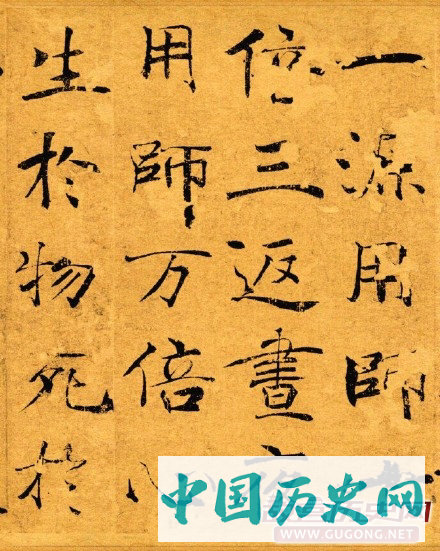 一源用師
倍三返晝
用師万倍心
生於物死於
中国历史网
WWW.GUGONG.NET